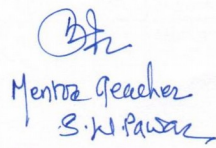 Mentor Teacher
S.W.Pawar